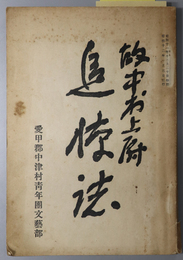 故中村上尉
追悼誌
愛甲郡中津村青年團文藝部